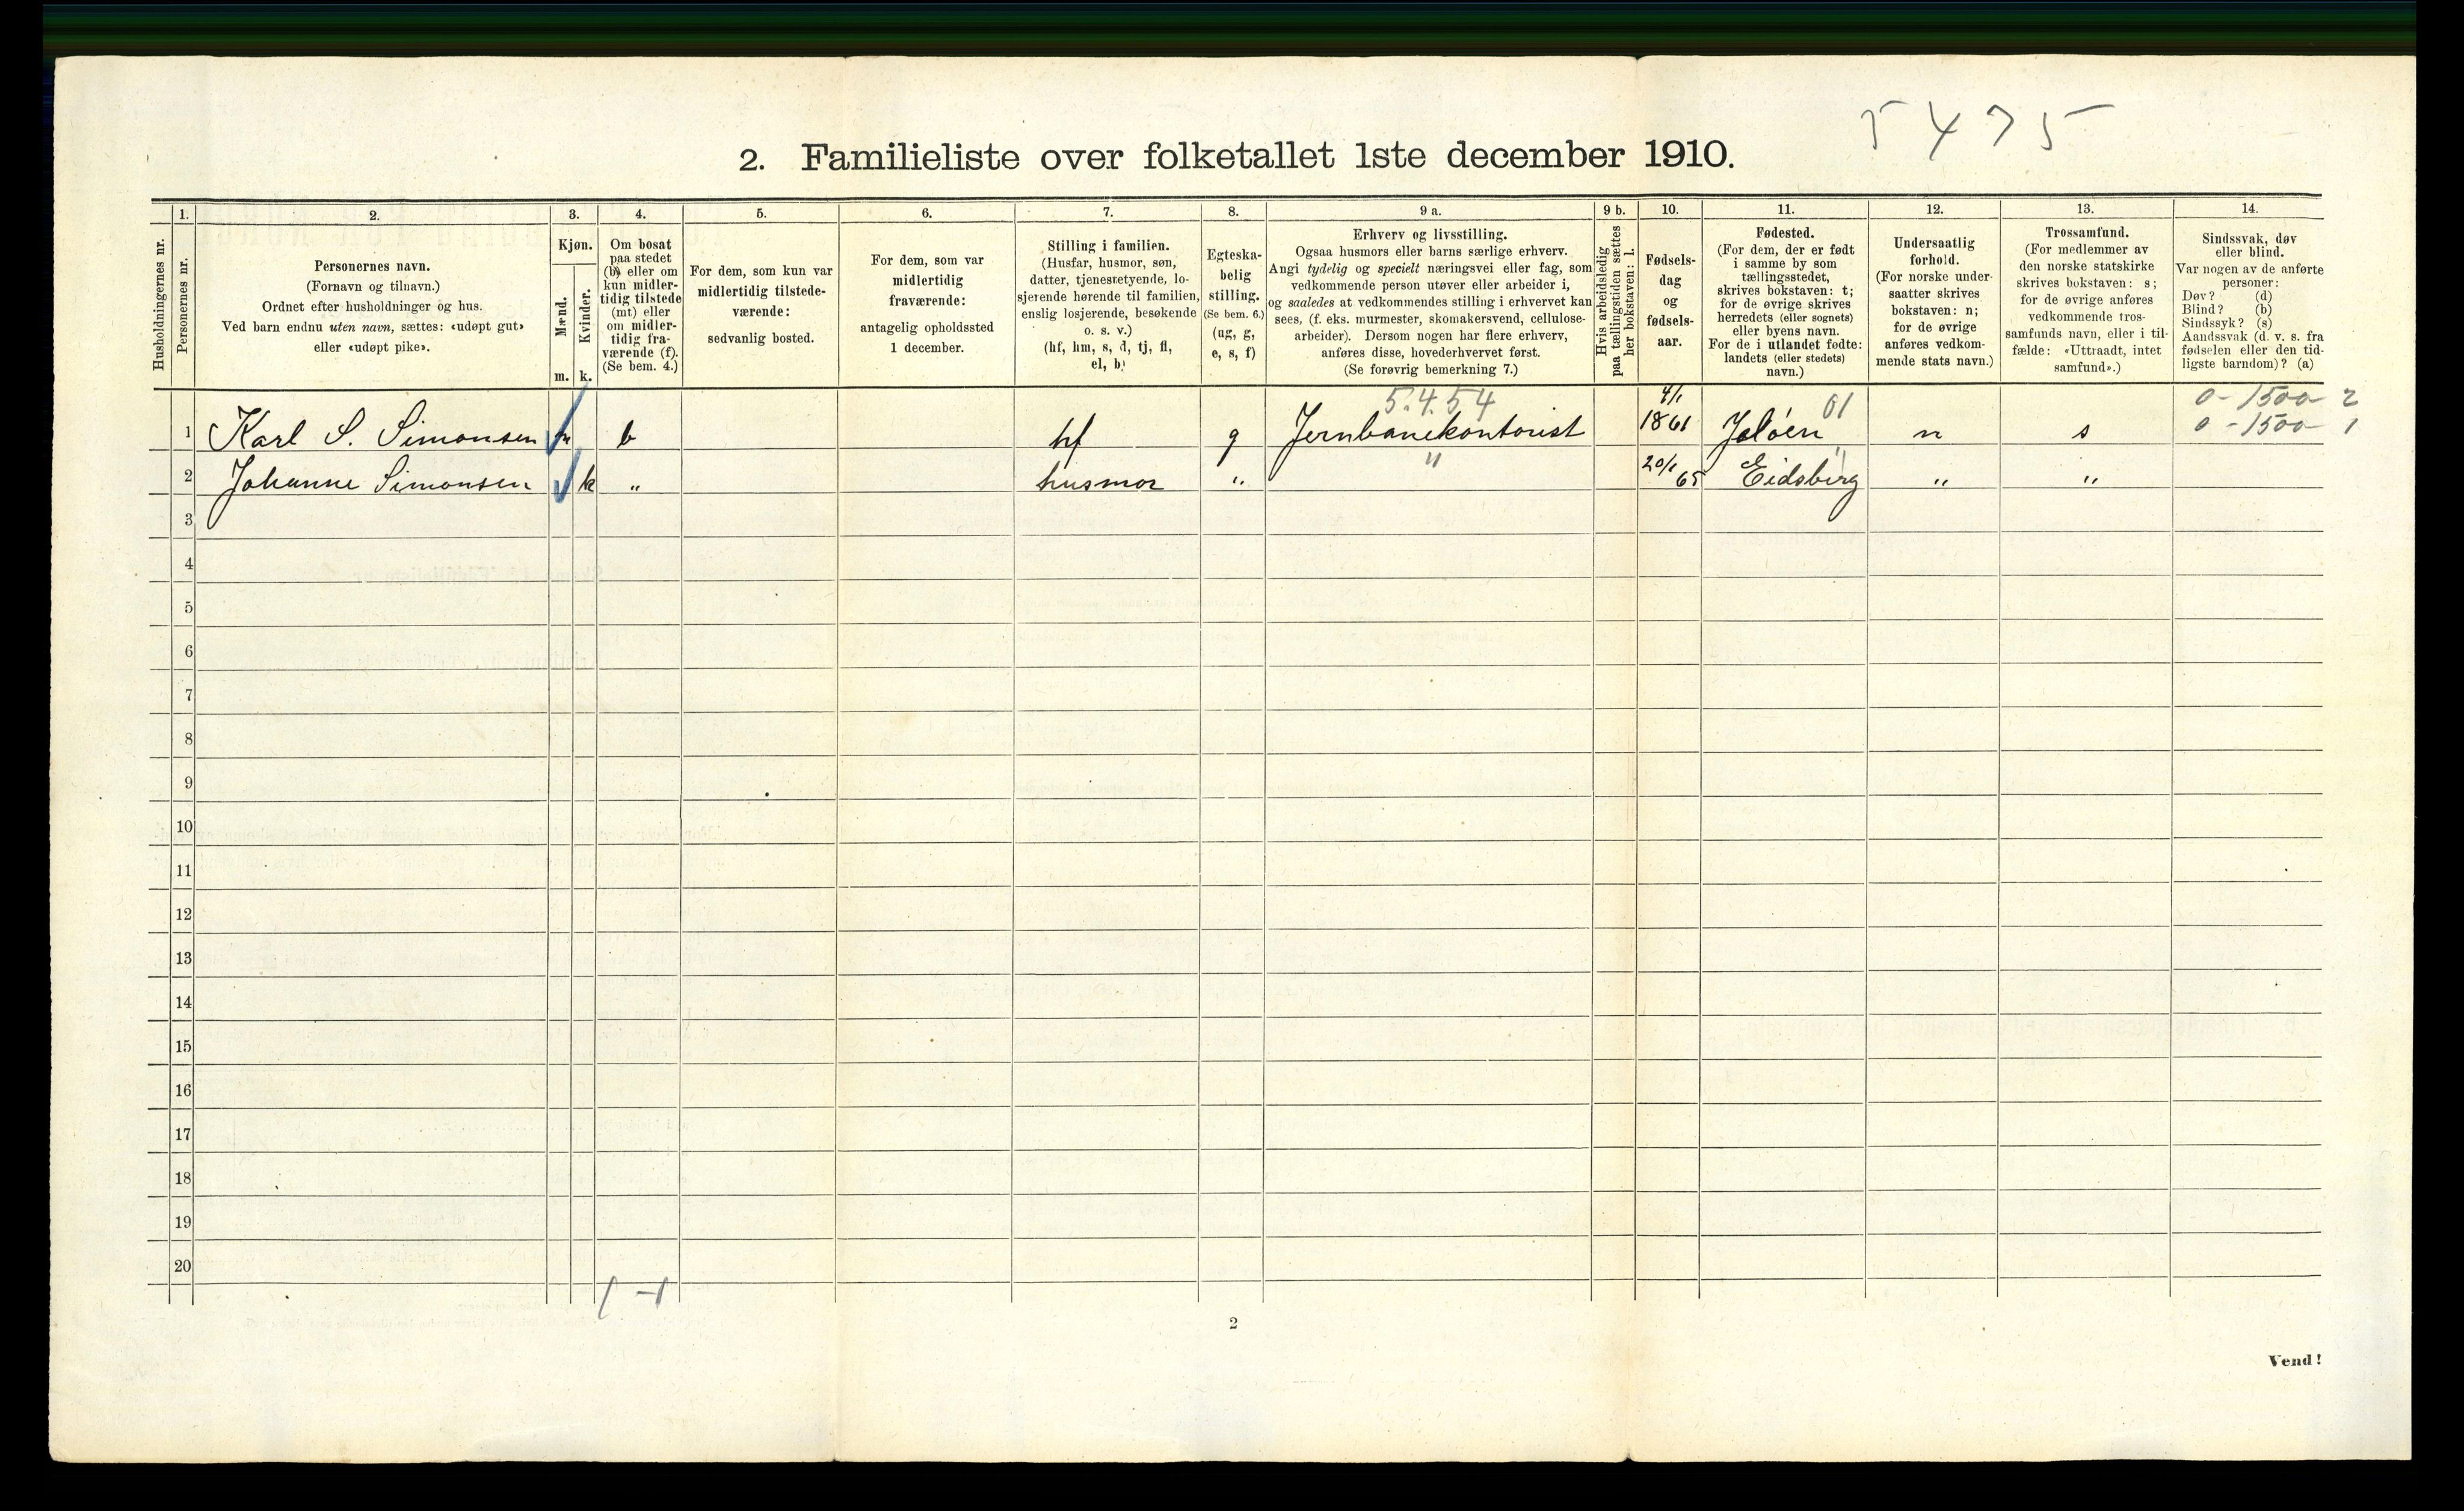 5475
2. Familieliste over folketallet 1ste december 1910.
Husholdningernes nr.
1.
Personernes nr.
2.
Personernes navn.
(Fornavn og tilnavn.)
Ordnet efter husholdninger og hus.
Ved barn endnu uten navn, sættes: «udøpt gut»
eller «udøpt pike».
3.
Kjøn.
Mænd.
Kvinder.
m. k.
4.
Om bosat
paa stedet
(b) eller om
kun midler-
tidig tilstede
(mt) eller
om midler-
tidig fra-
værende (f).
(Se bem. 4.)
5.
For dem, som kun var
midlertidig tilstede-
værende:
sedvanlig bosted.
6.
For dem, som var
midlertidig
fraværende:
antagelig opholdssted
1 december.
7.
Stilling i familien.
(Husfar, husmor, søn,
datter, tjenestetyende, lo-
sjerende hørende til familien,
enslig losjerende, besøkende
o. s. v.)
(hf, hm, s, d, tj, fl,
el, b)
8.
Egteska-
belig
stilling.
(Se bem. 6.)
(ug, g,
e, s, f)
9 a.
Erhverv og livsstilling.
Ogsaa husmors eller barns særlige erhverv.
Angi tydelig og specielt næringsvei eller fag, som
vedkommende person utøver eller arbeider i,
og saaledes at vedkommendes stilling i erhvervet kan
sees, (f. eks. murmester, skomakersvend, cellulose-
arbeider). Dersom nogen har flere erhverv,
anføres disse, hovederhvervet først.
(Se forøvrig bemerkning 7.)
9 b.
Hvis arbeidsledig
paa tællingstiden sættes
her bokstaven: l.
10.
Fødsels-
dag
og
fødsels-
aar.
11.
Fødested.
(For dem, der er født
i samme by som
tællingsstedet,
skrives bokstaven: t;
for de øvrige skrives
herredets (eller sognets)
eller byens navn.
For de i utlandet fødte:
landets (eller stedets)
navn.)
12.
Undersaatlig
forhold.
(For norske under-
saatter skrives
bokstaven: n;
for de øvrige
anføres vedkom-
mende stats navn.)
13.
Trossamfund.
(For medlemmer av
den norske statskirke
skrives bokstaven: s;
for de øvrige anføres
vedkommende tros-
samfunds navn, eller i til-
fælde: «Uttraadt, intet
samfund».)
14.
Sindssvak, døv
eller blind.
Var nogen av de anførte
personer:
Døv? (d)
Blind? (b)
Sindssyk? (s)
Aandssvak (d. v. s. fra
fødselen eller den tid-
ligste barndom)? (a)
5.4.54 4/1 01 0-1500-2
1 Karl S. Simonsen m b hf g Jernbanekontorist 1861 Jeløen n s 0-1500-1
" 20/1 "
2 Johanne Simonsen k " husmor " 65 Eidsberg " "
3
4
5
6
7
8
9
10
11
12
13
14
15
16
17
18
19
20
1 - 1
2
Vend!